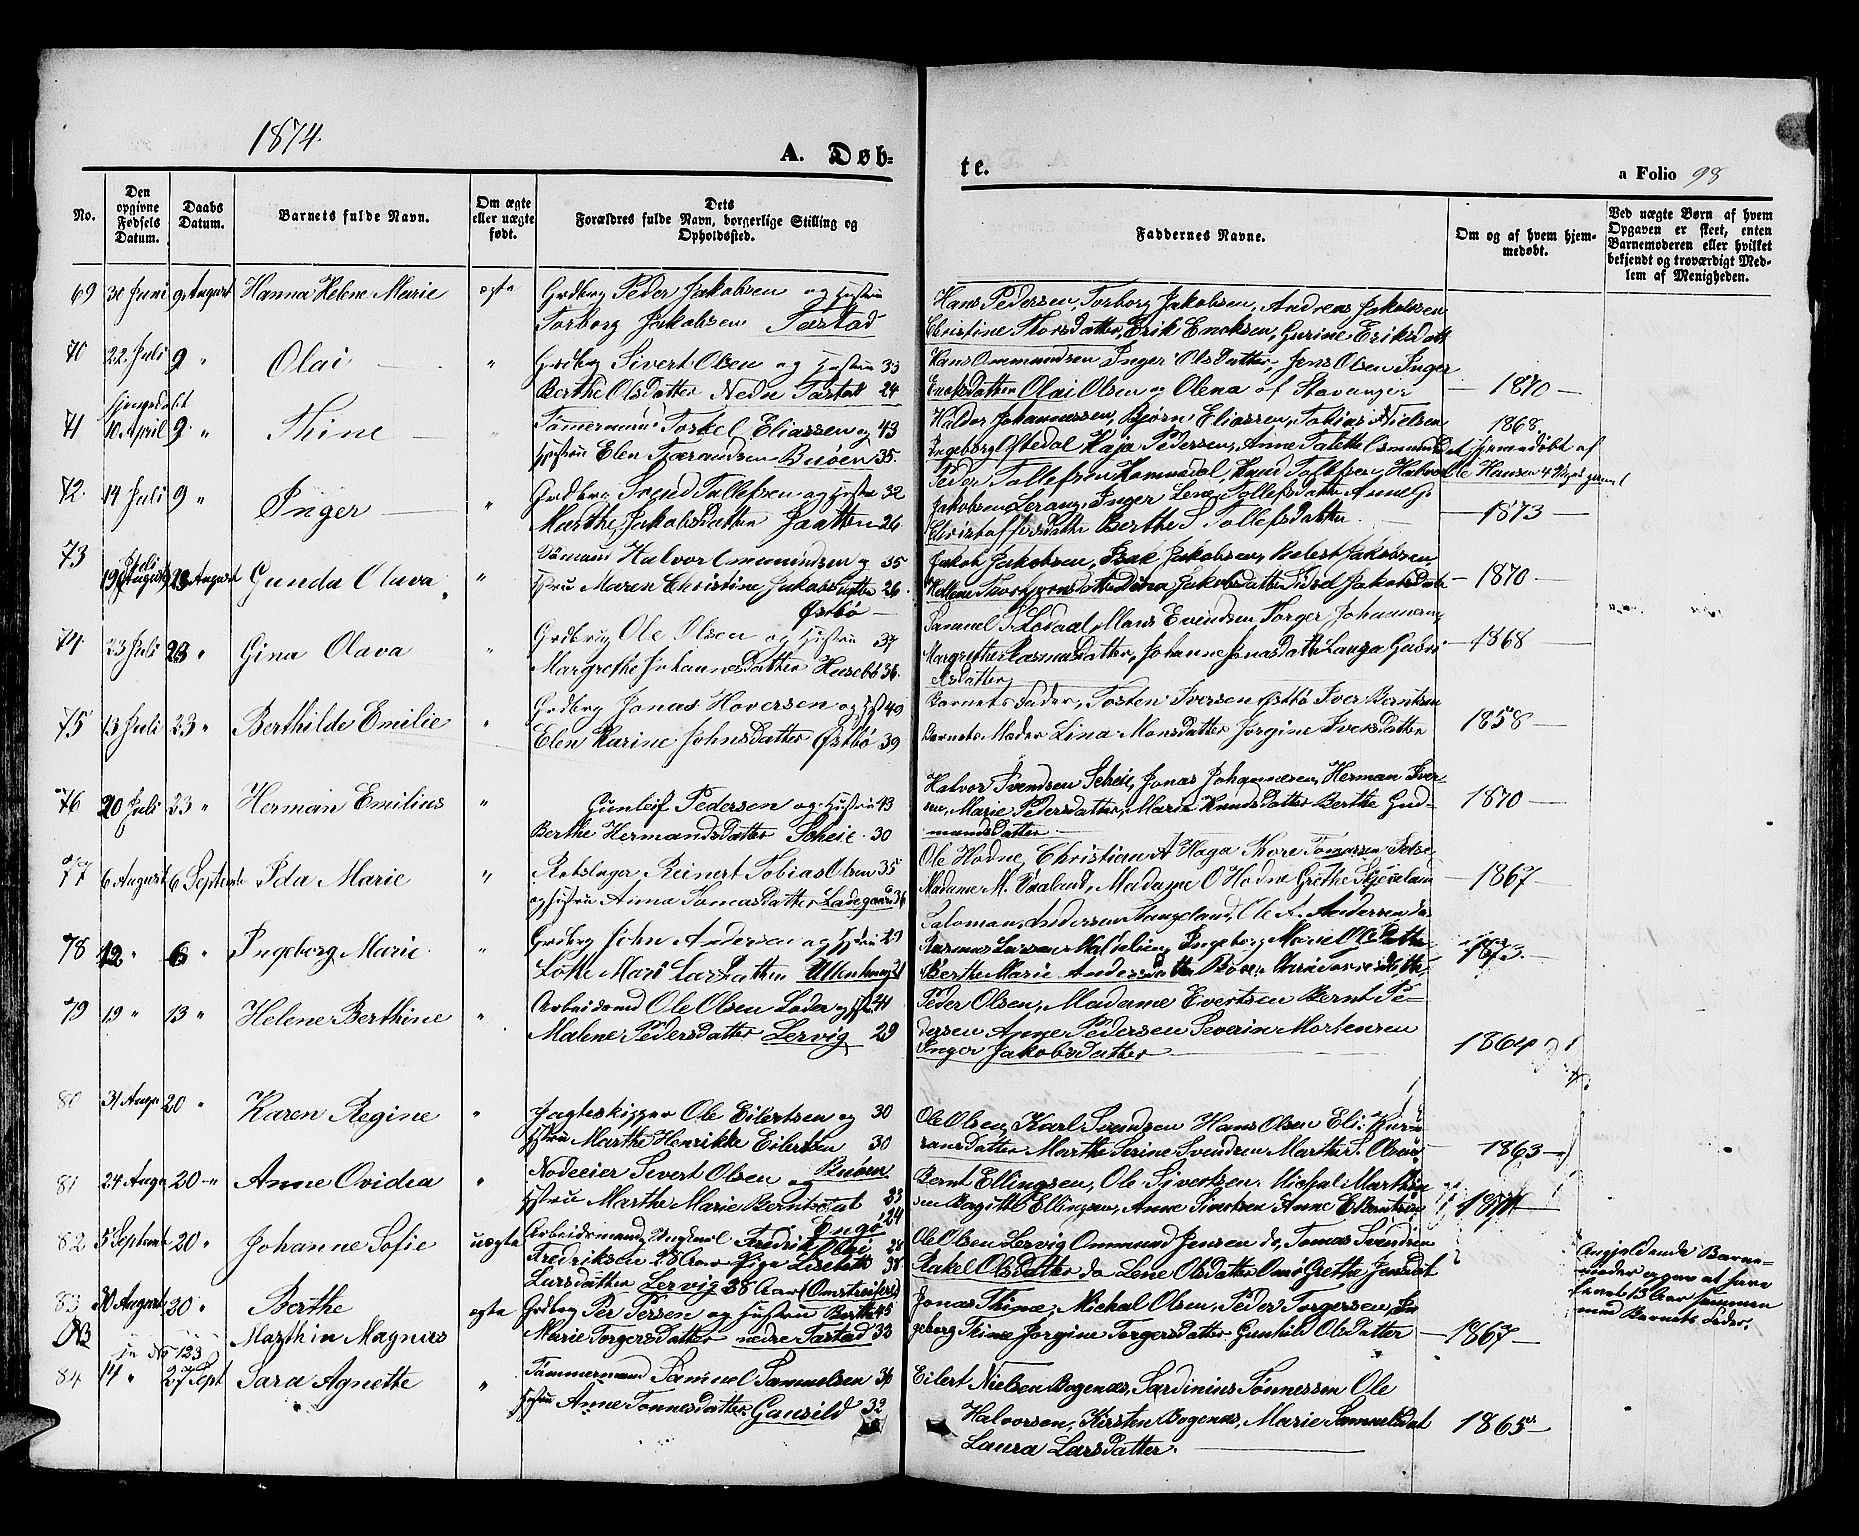 1874.
A. Døb-
te.
a Folio 98
No.
Den opgivne Fødsels Datum.
Daabs Datum.
Barnets fulde Navn.
Om ægte eller uægte født.
Dets
Forældres fulde Navn, borgerlige Stilling og
Opholdssted.
Faddernes Navne.
Om og af hvem hjem-
medøbt.
Ved uægte Børn af hvem
Opgaven er skeet, enten
Barnemoderen eller hvilket
bekjendt og troværdigt Med-
lem af Menigheden.
69 30 Juni 9 August Hanna Helene Marie ægte Grdbrg Peder Jakobsen og Hustru
Torborg Jakobsen Tastad
Hans Pedersen, Torborg Jakobsen, Andreas Jakobsen
Christine Thorsdatter, Erik Enoksen, Gurine Eriksdatt
70 22 Juli 9 " Olai " Grdbrg Sivert Olsen og Hustru 33
Berthe Olsdatter Nedre Tastad 24
Hans Ommundsen Inger Olsdatter, Jens Olsen Inger
Enoksdatter Olai Olsen og Olena af Stavanger
1870
hjemmedøbt
71 10 April 9 " Thine Tømermand Torkel Eliassen og 43
Hustru Elen Buøen 35
Haldor Johannessen, Bjørn Eliassen, Tobias Nielsen
Ingeborg Østedal Kaja Pedersen, Anne
1868 hjemmedøbt af
Ole Hansen
72. 14 Juli 9 " Inger " Grdbrg Svend Tollefsen og Hustru 32
Marthe Jakobsdatter Jaatten 26
Peder Tollefsen Knud Tollefsen, Halvor
Jakobsen Lerang, Inger Lene Tollefsdatter Anne G.
Christoffersdatter Berthe S Tollefsdatter
1873
73 Juli 19 August 23 August Gunda Olava " Halvor Omundsen og 35
Hstru Maren Christine Jakobsdatter 26
Østbø
Jakob Jakobsen, Isak Jakobsen, Jakobsen
Hellene Thorbjørnsdatter Jakobsdatter Jakobsdatt
1870
74 23 Juli 23 " Gina Olava " Grdbrg Ole Olsen og Hustru 37
Margrethe Johannesdatter Husebø 36
Samuel Lodaal, Mans Evindsen Torger Johannesen,
Margrethe Rasmusdatter, Johanne Jonasdatter Lauga
datter
1868
75 13 Juli 23 " Berthilde Emilie " Grdbrg Jonas Hoversen og Hst 49
Elen Karine Johnsdatter Østbø 39
Barnets Fader, Tosten Iversen Østbø Iver Berntsen
Barnets Moder Lina Monsdatter Jorgine Iversdatter
1858
76 20 Juli 23 " Herman Emilius " Gunleif Pedersen og Hustru 43
Berthe Hermandsdatter Scheie 30
Halvor Svendsen Scheie, Jonas Johannesen, Herman Iver-
sen, Marie Pedersdatter, Marie Knudsdatter Berthe Gud-
mundsdatter
1870
77 6 August 6 Septemb Ida Marie " Rebslager Reinert Tobias Olsen 35
og Hustru Anna Tomasdatter Ladegaard 36
Ole Hodne, Christian A Haga Thore Tomassen
Madame M. Vaaland, Madame O Hodne Grethe Skjæveland
1867
78 12 " 6 " Ingeborg Marie " Grdbrg John Andersen og Hstru 29
Marie Larsdatter Ullenhaug 21
Saloman Andersen Tangeland, Ole A. Andersen do
Rasmus Larsen Ingeborg Marie Olsdatter
Berthe Marie Andersdatter
1873
79 19 " 13 " Helene Berthine " Arbeidsmd Ole Olsen Loder og Hst 41
Malene Pedersdatter Lervig 29
Peder Olsen, Madame Evertsen Bernt Pe-
dersen Anne Pedersen Severin Mortensen
Inger Jakobsdatter
1864
80 31 Augu 20 " Karen Regine " Jagteskipper Ole Eilertsen og 30
Hstru Marthe Henrikke Eilertsen 30
Buøen
Ole Olsen, Karl Svendsen Hans Olsen Eli
Marthe Serine Svendsen Marthe S. Olsen
1863
81 24 Augu 20 " Anne Ovidia " Nodeeier Sivert Olsen og
Hstru Marthe Marie Berntsdat 23
Engø 24
Bernt Ellingsen, Ole Sivertsen Michal Marthin
sen Bergitte Ellingsen, Anne Sivertsen Anne E Berntsen
1871
82 5 Septemb 20 " Johanne Sofie uægte Arbeidsmand Ungkarl Fredrik Ole 28
Fredriksen 28 Aar Pige Lisebeth 38
Larsdatter Lervig 38 Aar (Omstreifere)
Ole Olsen Lervig Ommund Jensen do, Tomas Svendsen
Rakel Olsdatter do Lene Olsdatter Grethe Jensdat
Angjældende Barne-
moder opgav at have
levet 13 Aar sammen
med Barnets Fader.
83 30 August 20 " Berthe ægte Grdbrg Per Persen og Hustru Berthe 45
Marie Torgersdatter nedre Tastad 33
Jonas Thime, Michal Olsen, Peder Torgersen, In-
geborg Thime Jorgine Torgersdatter Gunhild Olsdatter
1867
NB Marthin Magnus
se No 123
84 14 " 27 Sept Sara Agnette " Tømmermand Samuel Samuelsen 36
Hstru Anne Tonnesdatter Gausild 32
Eilert Nielsen Bogenæs, Sardinius Tønnessen Ole
Halvorsen, Kirsten Bogenæs, Marie Samuelsdat
Laura Larsdatter.
1865